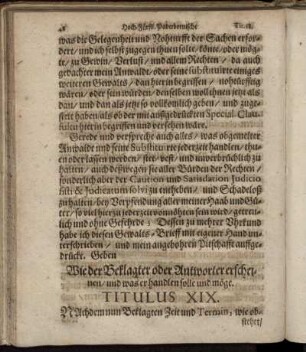 48 Hoch-Fürstl. Paderbornische Tit. 18.
was die Gelegenheit und Nothturfft der Sachen erfor-
dert, und ich selbst zugegen thuen solte, könte, oder mög-
te, zu Gewin, Verlust, und allem Rechten, da auch
gedachter mein Anwaldt oder seine substituirte einiges
weiteren Gewalts, dan hierin begriffen, nohtdürfftig
wären, oder sein würden, denselben will ihnen jetz als
dan, und dan als jetzo so vollkomlich geben, und zuge-
stelt haben, als ob der mit außgedrückten Special Clau-
sulen hierin begriffen und versehen wäre.
Gerede und verspreche auch alles, was obgemelter
Anwaldt und seine Substituirte jederzeit handlen, thu-
en oder lassen werden, stet, vest, und unverbrüchlich zu
halten, auch deßwegen sie aller Bürden der Rechten,
sonderlich aber der Caution und Satisdation Judicio
sisti & Judicatum solvi zu entheben, und Schadeloß
zuhalten, bey Verpfändung aller meiner Haab und Gü-
ter, so viel hierzu jederzeit vonnöhten sein wird, getreu-
lich und ohne Gefehrde; Dessen zu mehrer Uhrkund
hab ich diesen Gewalts-Brieff mit eigener Hand un-
terschrieben, und mein angebohren Pitschafft auffge-
drückt. Geben
Wie der Beklagter oder Antworter erschei-
nen, und was er handlen solle und möge.
TITULUS XIX.
NAchdem nun Beklagten Zeit und Termin, wie ob-
stehet/